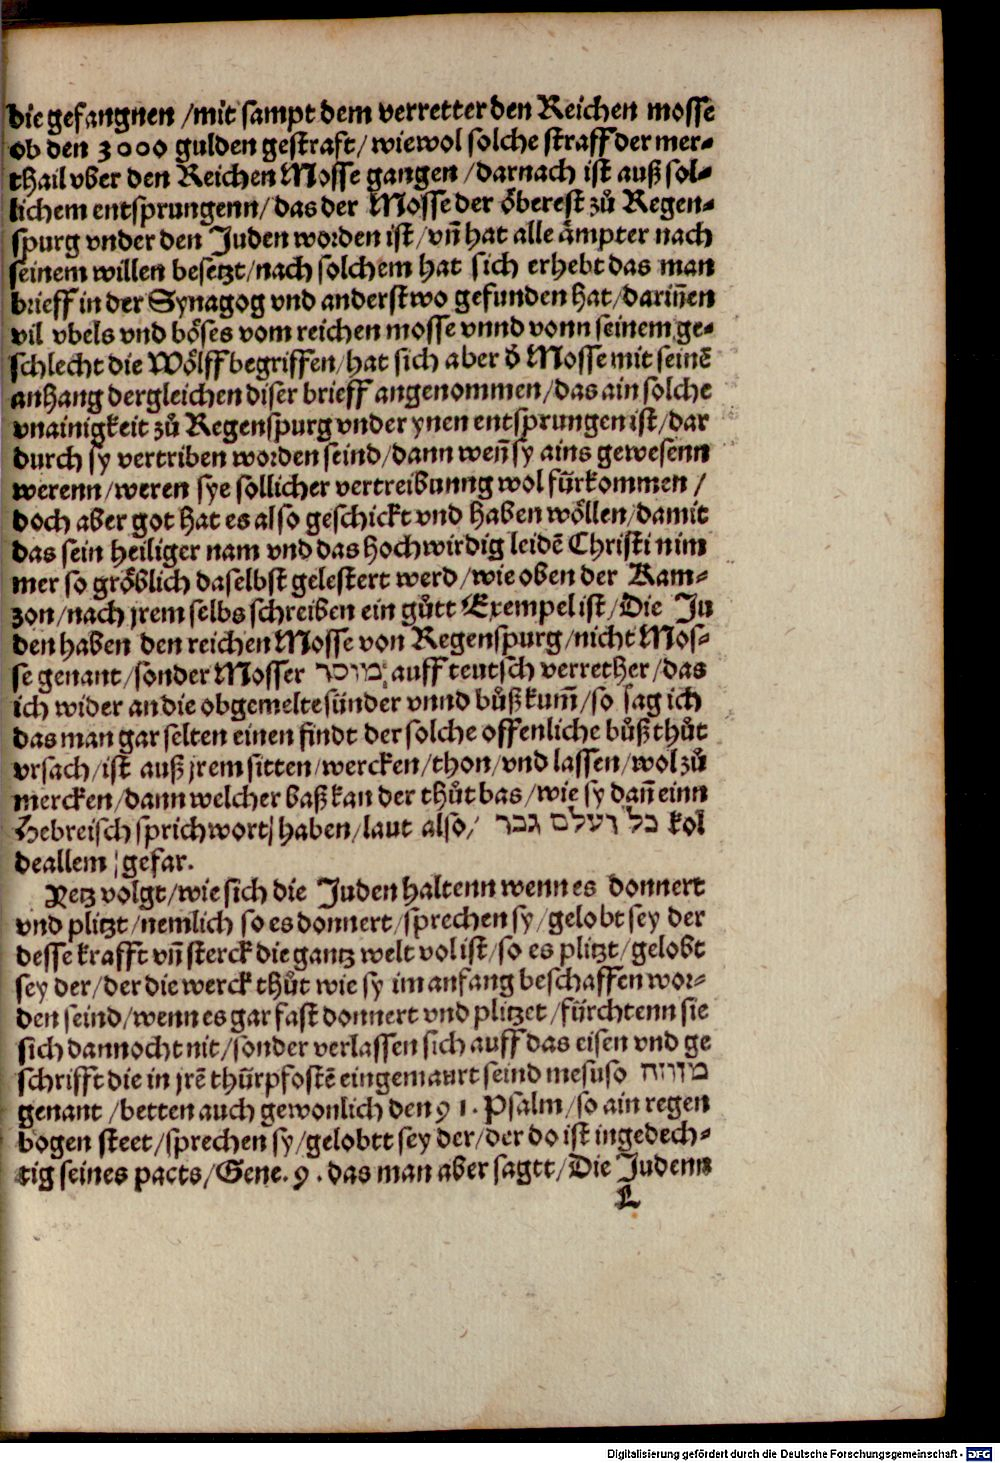 die gefangnen /mit sampt dem verretter den Reichen mosse
ob den 3000 gulden gestraft/ wiewol solche straff der mer-
thail vber den Reichen Mosse gangen /darnach ist auß sol-
lichem entsprungenn/ das der Mosse der öberest zů Regen-
spurg vnder den Juden worden ist/ vn̄ hat alle ämpter nach
seinem willen besetzt/nach solchem hat sich erhebt das man
brieff in der Synagog vnd anderstwo gefunden hat/darin̄en
vil vbels vnd böses vom reichen mosse vnnd vonn seinem ge-
schlecht die Wölff begriffen/hat sich aber d̄ Mosse mit seinē
anhang dergleichen diser brieff angenommen/das ain solche
vnainigkeit zů Regenspurg vnder ynen entsprungen ist/dar
durch sy vertriben worden seind/dann wen̄ sy ains gewesenn
werenn/weren sye sollicher vertreibunng wol fürkommen /
doch aber got hat es also geschickt vnd haben wöllen/damit
das sein heiliger nam vnd das hochwirdig leidē Christi nim
mer so gröblich daselbst gelestert werd/wie oben der Ram-
zon/nach jrem selbs schreiben ein gůtt Exempel ist/Die Ju
den haben den reichen Mosse von Regenspurg/nicht Mos-
se genant/sonder Mosser מוסר auff teutsch verrether/das
ich wider an die obgemelte sünder vnnd bůß kum̄/so sag ich
das man gar selten einen findt der solche offenliche bůß thůt
vrsach/ist auß jrem sitten/wercken/thon/vnd lassen/wol zů
mercken/dann welcher baß kan der thůt bas/wie sy dan̄ einn
Hebreisch sprichwort haben/laut also/ כל דעלם גבר kol
deallem gefar.
Yetz volgt/wie sich die Juden haltenn wenn es donnert
vnd plitzt/nemlich so es donnert/sprechen sy/gelobt sey der
desse krafft vn̄ sterck die gantz welt vol ist/so es plitzt/gelobt
sey der/der die werck thůt wie sy im anfang beschaffen wor-
den seind/wenn es gar fast donnert vnd plitzet/fürchtenn sie
sich dannocht nit/sonder verlassen sich auff das eisen vnd ge
schrifft die in jrē thürpfostē eingemaurt seind mesuso מזוזה
genant /betten auch gewonlich den 91. Psalm/so ain regen
bogen steet/sprechen sy/gelobtt sey der/der do ist ingedech-
tig seines pacts/Gene. 9. das man aber sagtt/Die Judenn
L
Digitalisierung gefördert durch die Deutsche Forschungsgemeinschaft - DFG